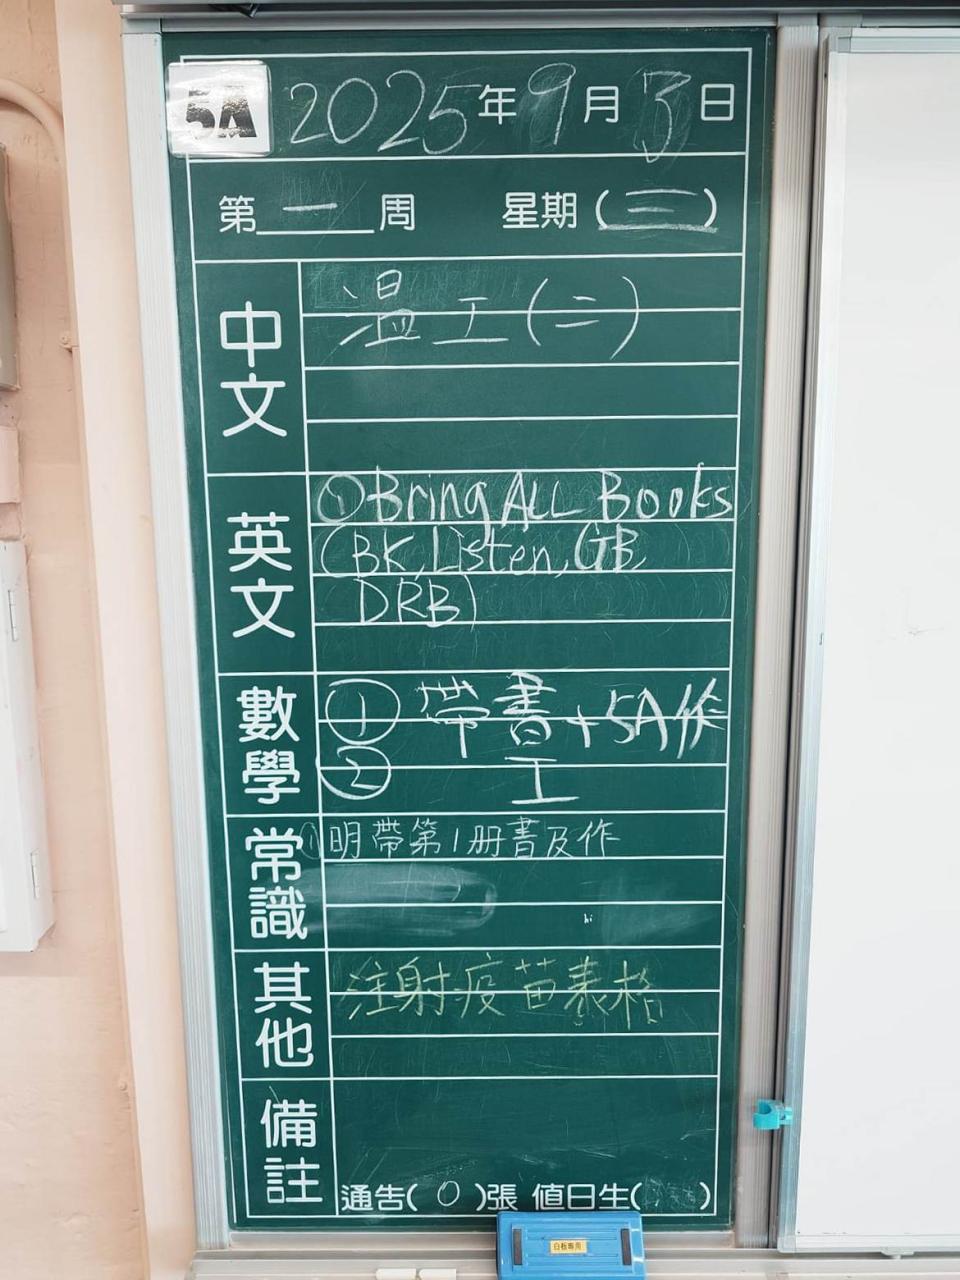 5A 2025年9月3日
第一周 星期(三)
中文
温工(二)
英文
①Bring ALL Books
(BK, Listen, GB,
DRB)
數學
① 帶書+5A作
② 工
常識
①明帶第1册書及作
hi
其他
注射疫苗表格
備註
通告(0)張 值日生( )
白板專用